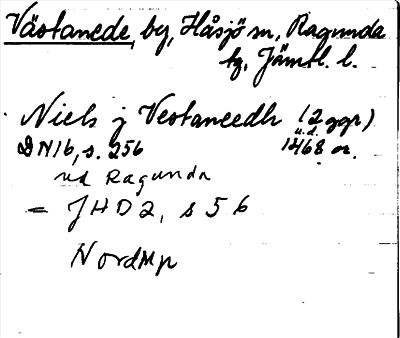 Västanede, by, Håsjö sn, Ragunda
tg, Jämtl. l.
Niels j Vestaneedh (2 ggr)
u.d.
DN 16, s. 256 1468 or.
vid Ragunda
= JHD 2, s 56
NordMp